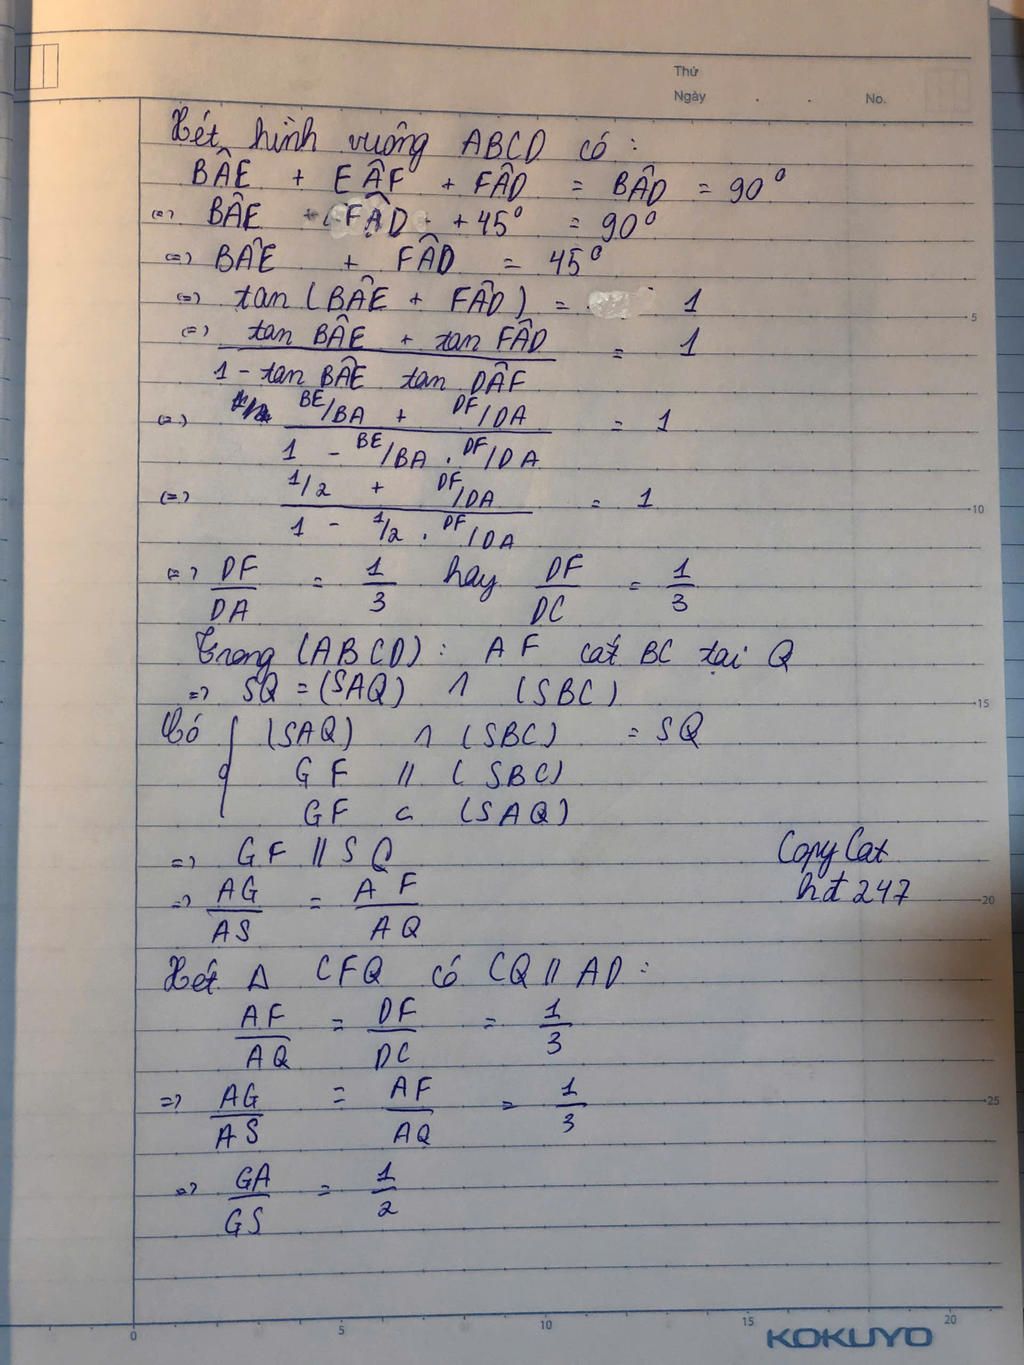 Thứ
Ngày . . No.
Xét hình vuông ABCD có :
BÂE + EÂF + FÂD = BÂD = 90°
(=) BÂE + FÂD + 45° = 90°
(=) BÂE + FÂD = 45°
(=) tan (BÂE + FÂD) = 1
(=) tan BÂE + tan FÂD = 1
1 - tan BÂE tan DÂF
(=) BE/BA + DF/DA = 1
1 - BE/BA . DF/DA
(=) 1/2 + DF/DA = 1
1 - 1/2 . DF/DA
(=) DF/DA = 1/3 hay DF/DC = 1/3
Trong (ABCD) : AF cắt BC tại Q
=> SQ = (SAQ) ∩ (SBC)
Có { (SAQ) ∩ (SBC) = SQ
GF // (SBC)
GF ⊂ (SAQ)
=> GF // SQ
Copy Cat
hđ 247
=> AG/AS = AF/AQ
Xét Δ CFQ có CQ // AD :
AF/AQ = DF/DC = 1/3
=> AG/AS = AF/AQ = 1/3
=> GA/GS = 1/2
5
10
15
20
25
0 5 10 15 20
KOKUYO